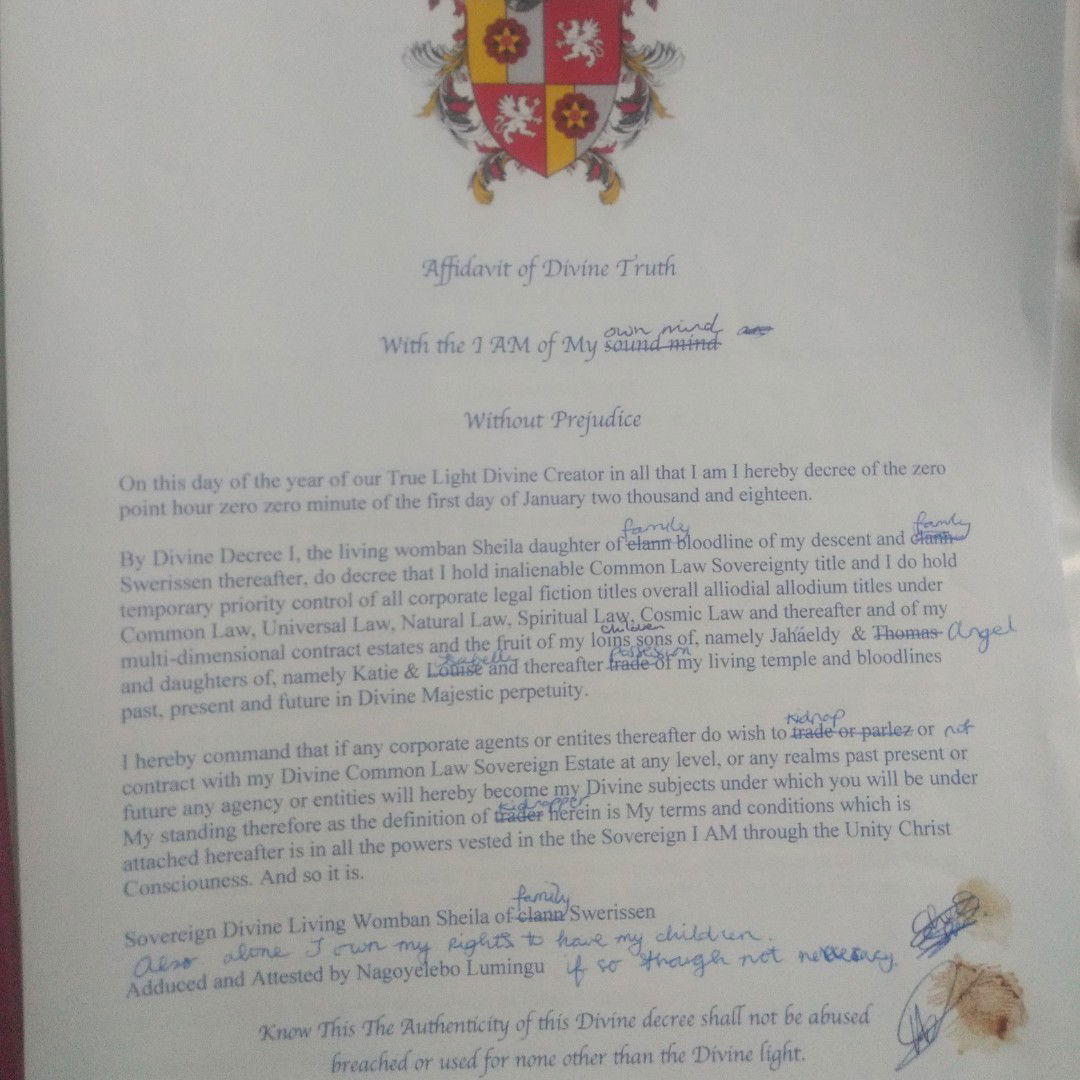 Affidavit of Divine Truth
own mind
With the I AM of My sound mind
Without Prejudice
On this day of the year of our True Light Divine Creator in all that I am I hereby decree of the zero
point hour zero zero minute of the first day of January two thousand and eighteen.
family family
By Divine Decree I, the living womban Sheila daughter of clann bloodline of my descent and clann
Swerissen thereafter, do decree that I hold inalienable Common Law Sovereignty title and I do hold
temporary priority control of all corporate legal fiction titles overall alliodial allodium titles under
Common Law, Universal Law, Natural Law, Spiritual Law, Cosmic Law and thereafter and of my
children
multi-dimensional contract estates and the fruit of my loins sons of, namely Jaháeldy & Thomas Angel
possession
and daughters of, namely Katie & Louise and thereafter trade of my living temple and bloodlines
past, present and future in Divine Majestic perpetuity.
kidnap
I hereby command that if any corporate agents or entites thereafter do wish to trade or parlez or not
contract with my Divine Common Law Sovereign Estate at any level, or any realms past present or
future any agency or entities will hereby become my Divine subjects under which you will be under
kidnapper
My standing therefore as the definition of trader herein is My terms and conditions which is
attached hereafter is in all the powers vested in the the Sovereign I AM through the Unity Christ
Consciouness. And so it is.
family
Sovereign Divine Living Womban Sheila of clann Swerissen
Also alone I own my rights to have my children.
Adduced and Attested by Nagoyelebo Lumingu if so though not necessary.
Know This The Authenticity of this Divine decree shall not be abused
breached or used for none other than the Divine light.